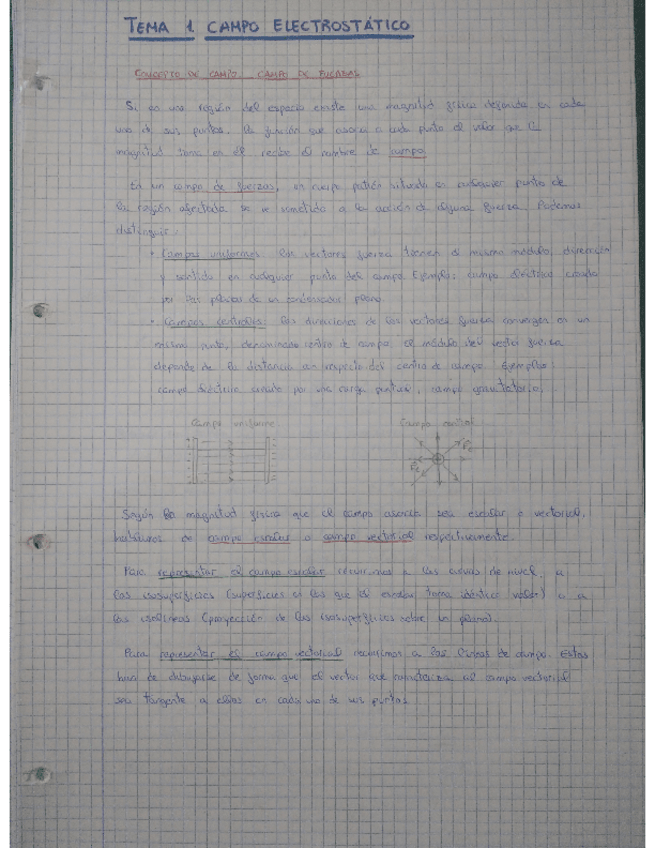 TEMA 1 CAMPO ELECTROSTÁTICO
CONCEPTO DE CAMPO. CAMPO DE FUERZAS
Si en una región del espacio existe una magnitud física definida en cada
uno de sus puntos, la función que asocia a cada punto el valor que la
magnitud toma en él recibe el nombre de campo.
En un campo de fuerzas, un cuerpo patrón situado en cualquier punto de
la región afectada se ve sometido a la acción de alguna fuerza. Podemos
distinguir:
· Campos uniformes: los vectores fuerza tienen el mismo módulo, dirección
y sentido en cualquier punto del campo. Ejemplo: campo eléctrico creado
por las placas de un condensador plano.
· Campos centrales: las direcciones de los vectores fuerza convergen en un
mismo punto, denominado centro de campo. El módulo del vector fuerza
depende de la distancia con respecto del centro de campo. Ejemplos:
campo eléctrico creado por una carga puntual, campo gravitatorio.
Campo uniforme Campo central
Según la magnitud física que el campo asocia sea escalar o vectorial,
hablamos de campo escalar o campo vectorial respectivamente.
Para representar el campo escalar recurrimos a las curvas de nivel, a
las isosuperficies (superficies en las que el escalar toma idéntico valor) o a
las isolíneas (proyección de las isosuperficies sobre un plano).
Para representar el campo vectorial recurrimos a las líneas de campo. Estas
han de dibujarse de forma que el vector que caracteriza al campo vectorial
sea tangente a ellas en cada uno de sus puntos.